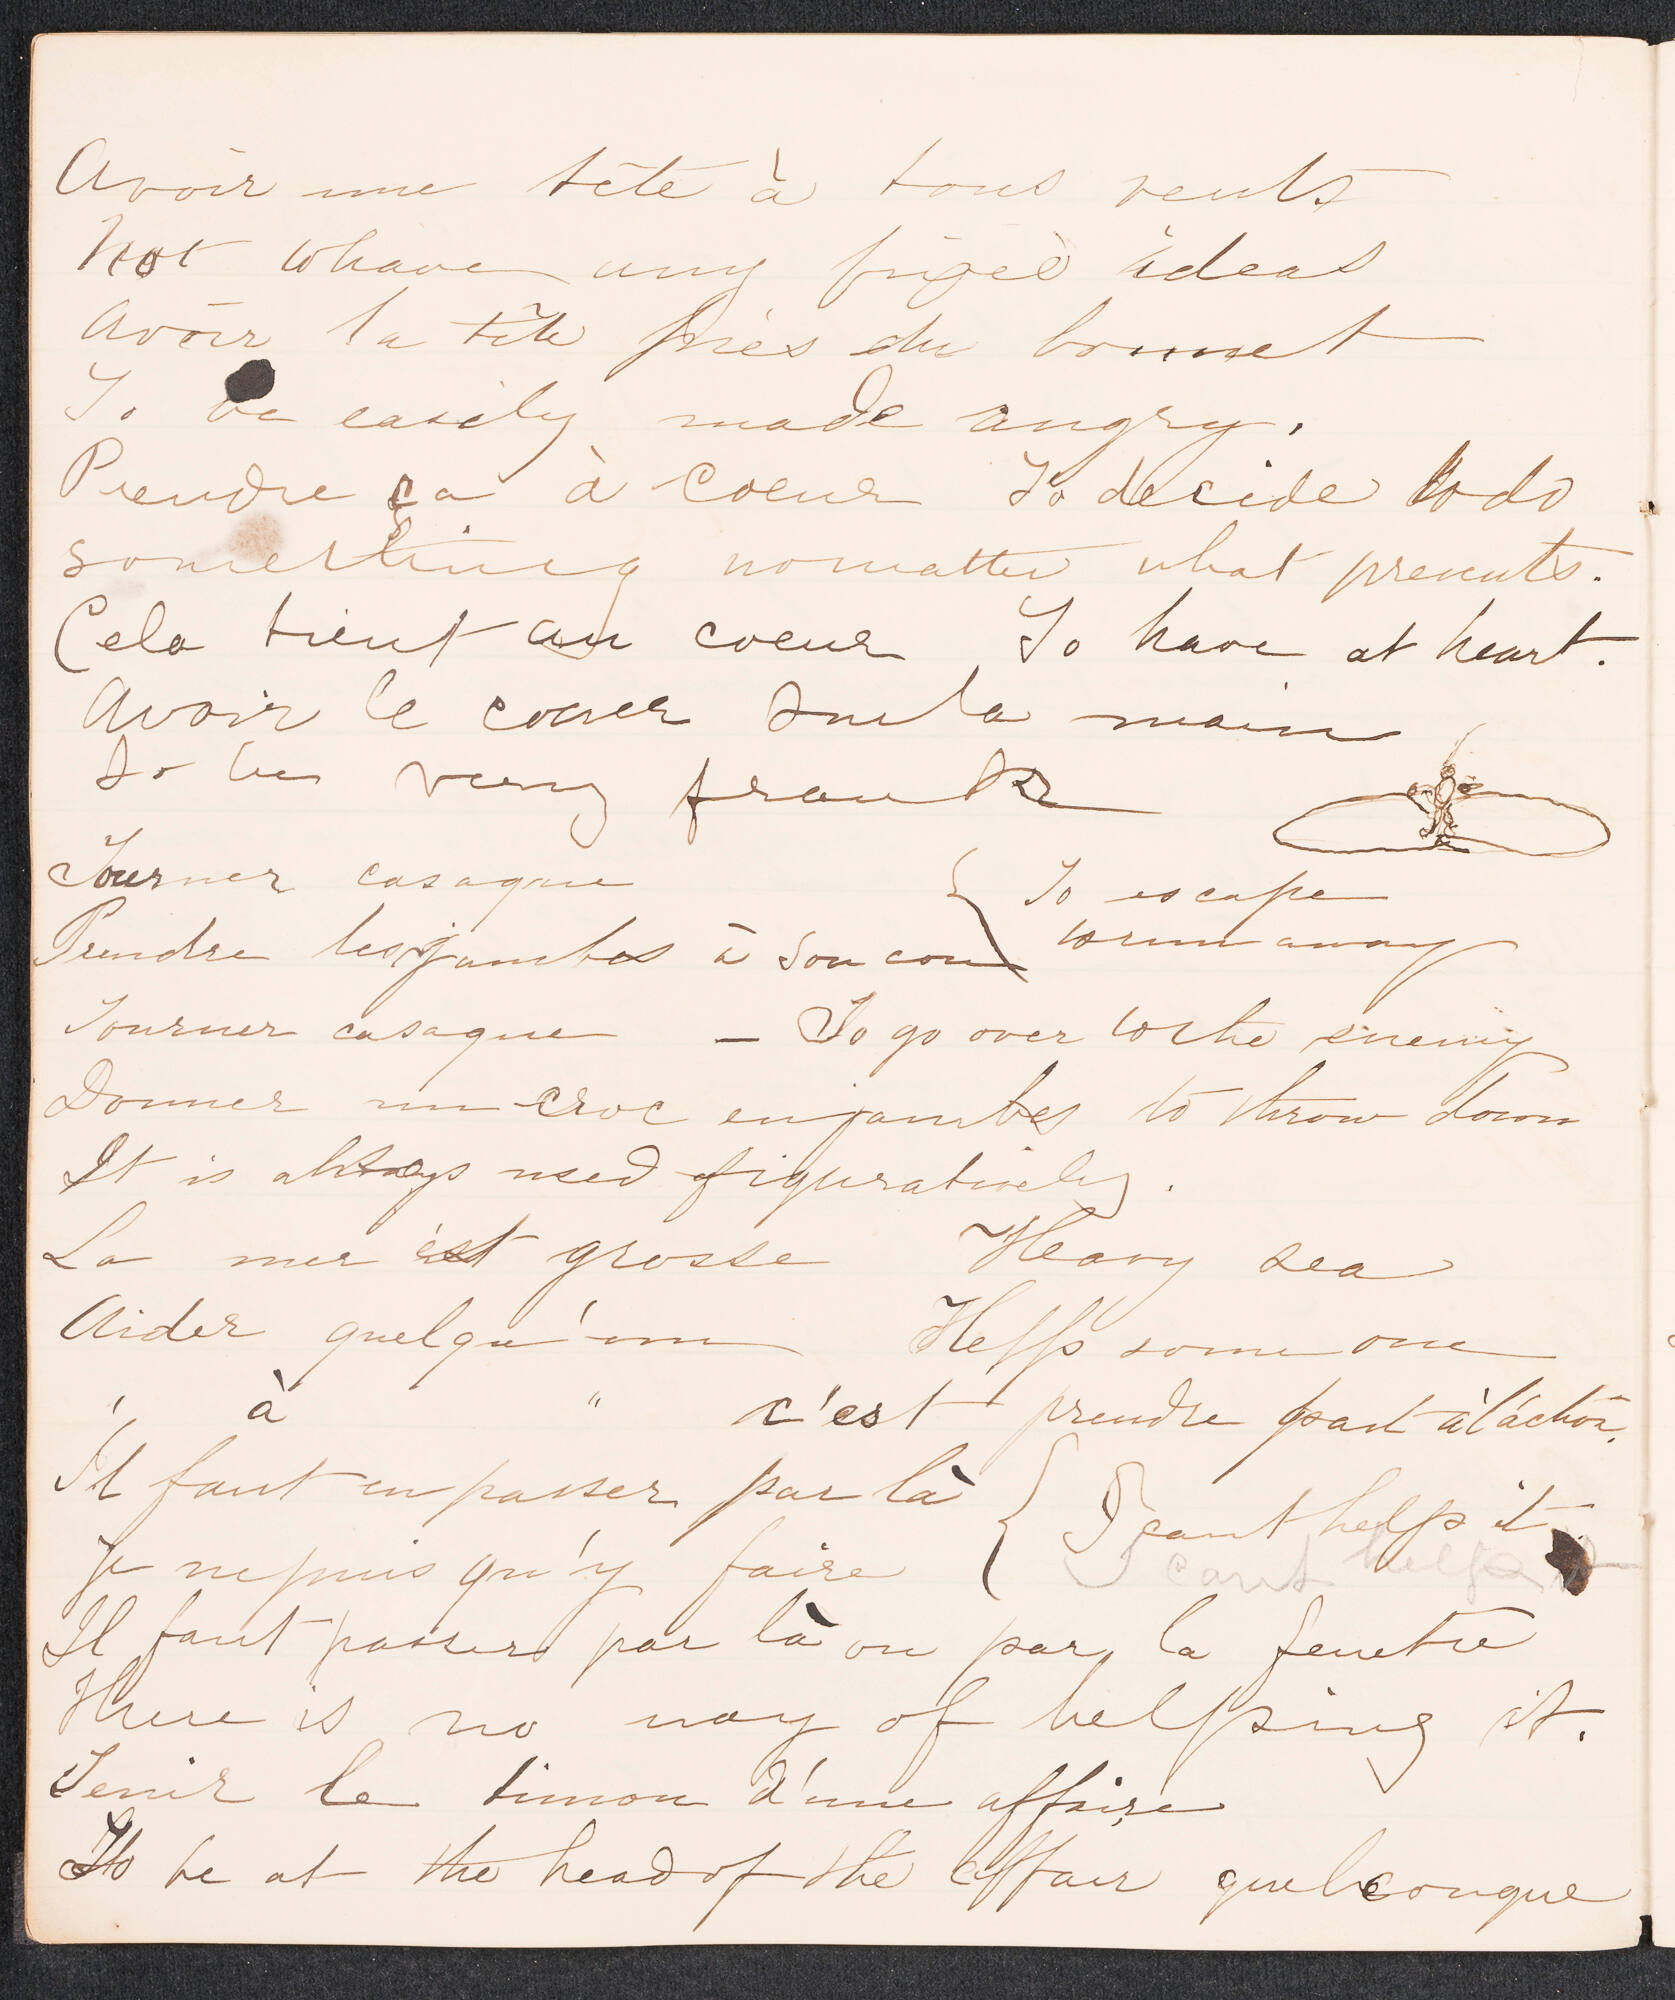 Avoir une tête à tous vents
Not to have any fixed ideas
Avoir la tête près du bonnet
To be easily made angry.
Prendre ça à coeur To decide to do
something no matter what prevents.
Cela tient au coeur To have at heart.
Avoir le coeur sur la main
to be very frank
Tourner casaque { To escape
Prendre les jambes à son cou to run away
Tourner casaque – To go over to the enemy
Donner un croc en jambes to throw down
It is always used figuratively.
La mer est grosse Heavy sea
Aider quelqu'un Help some one
" à " c'est prendre part à l'action.
Il faut en passer par là { I can't help it
je ne puis qu'y faire I cant help it
Il faut passer par là ou par la fenetre
There is no way of helping it.
Tenir le timon d'une affaire
To be at the head of the affair quelconque